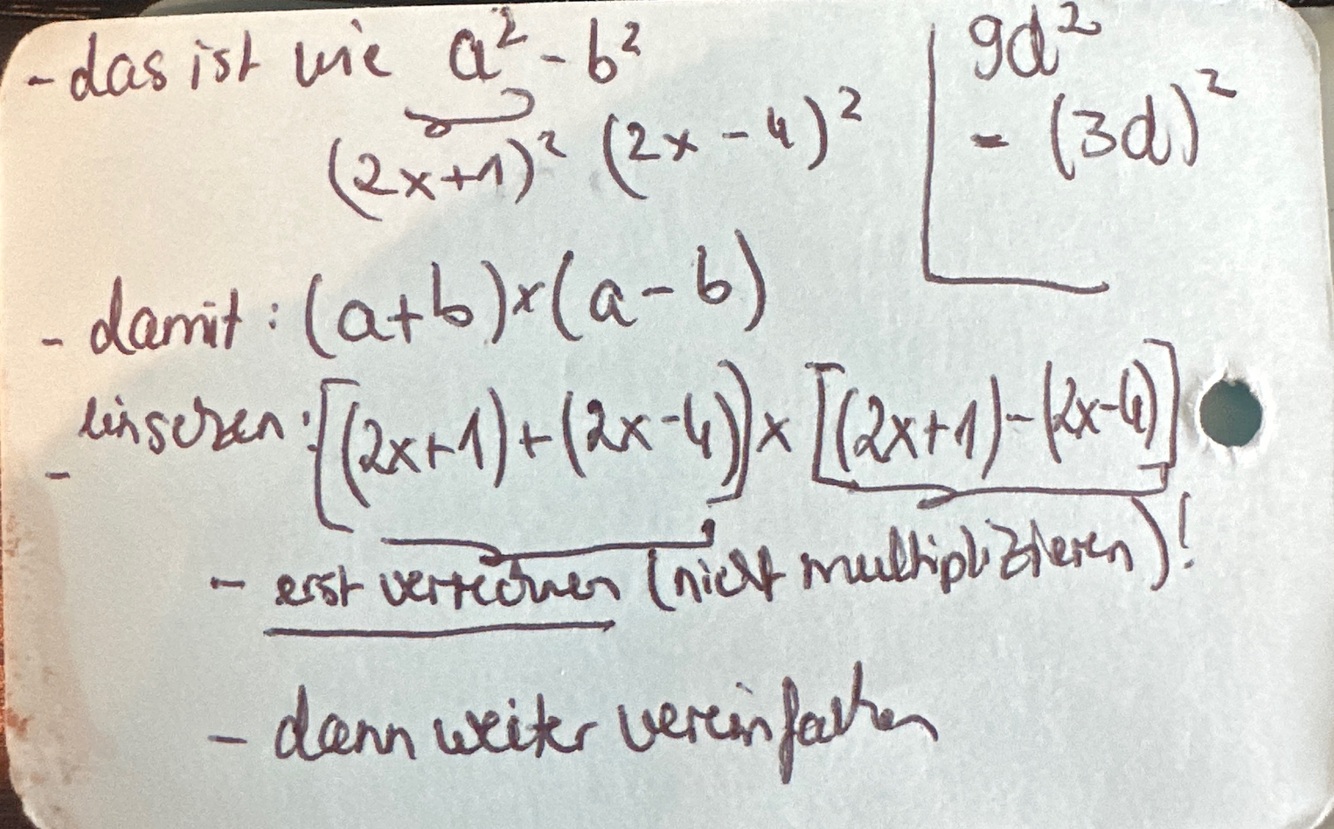 - das ist wie a² - b²
(2x+1)² (2x - 4)²
9d²
= (3d)²
- damit : (a+b)×(a - b)
- einsetzen : [(2x+1)+(2x-4)]×[(2x+1)-(2x-4)]
- erst verrechnen (nicht multiplizieren)!
- dann weiter vereinfachen